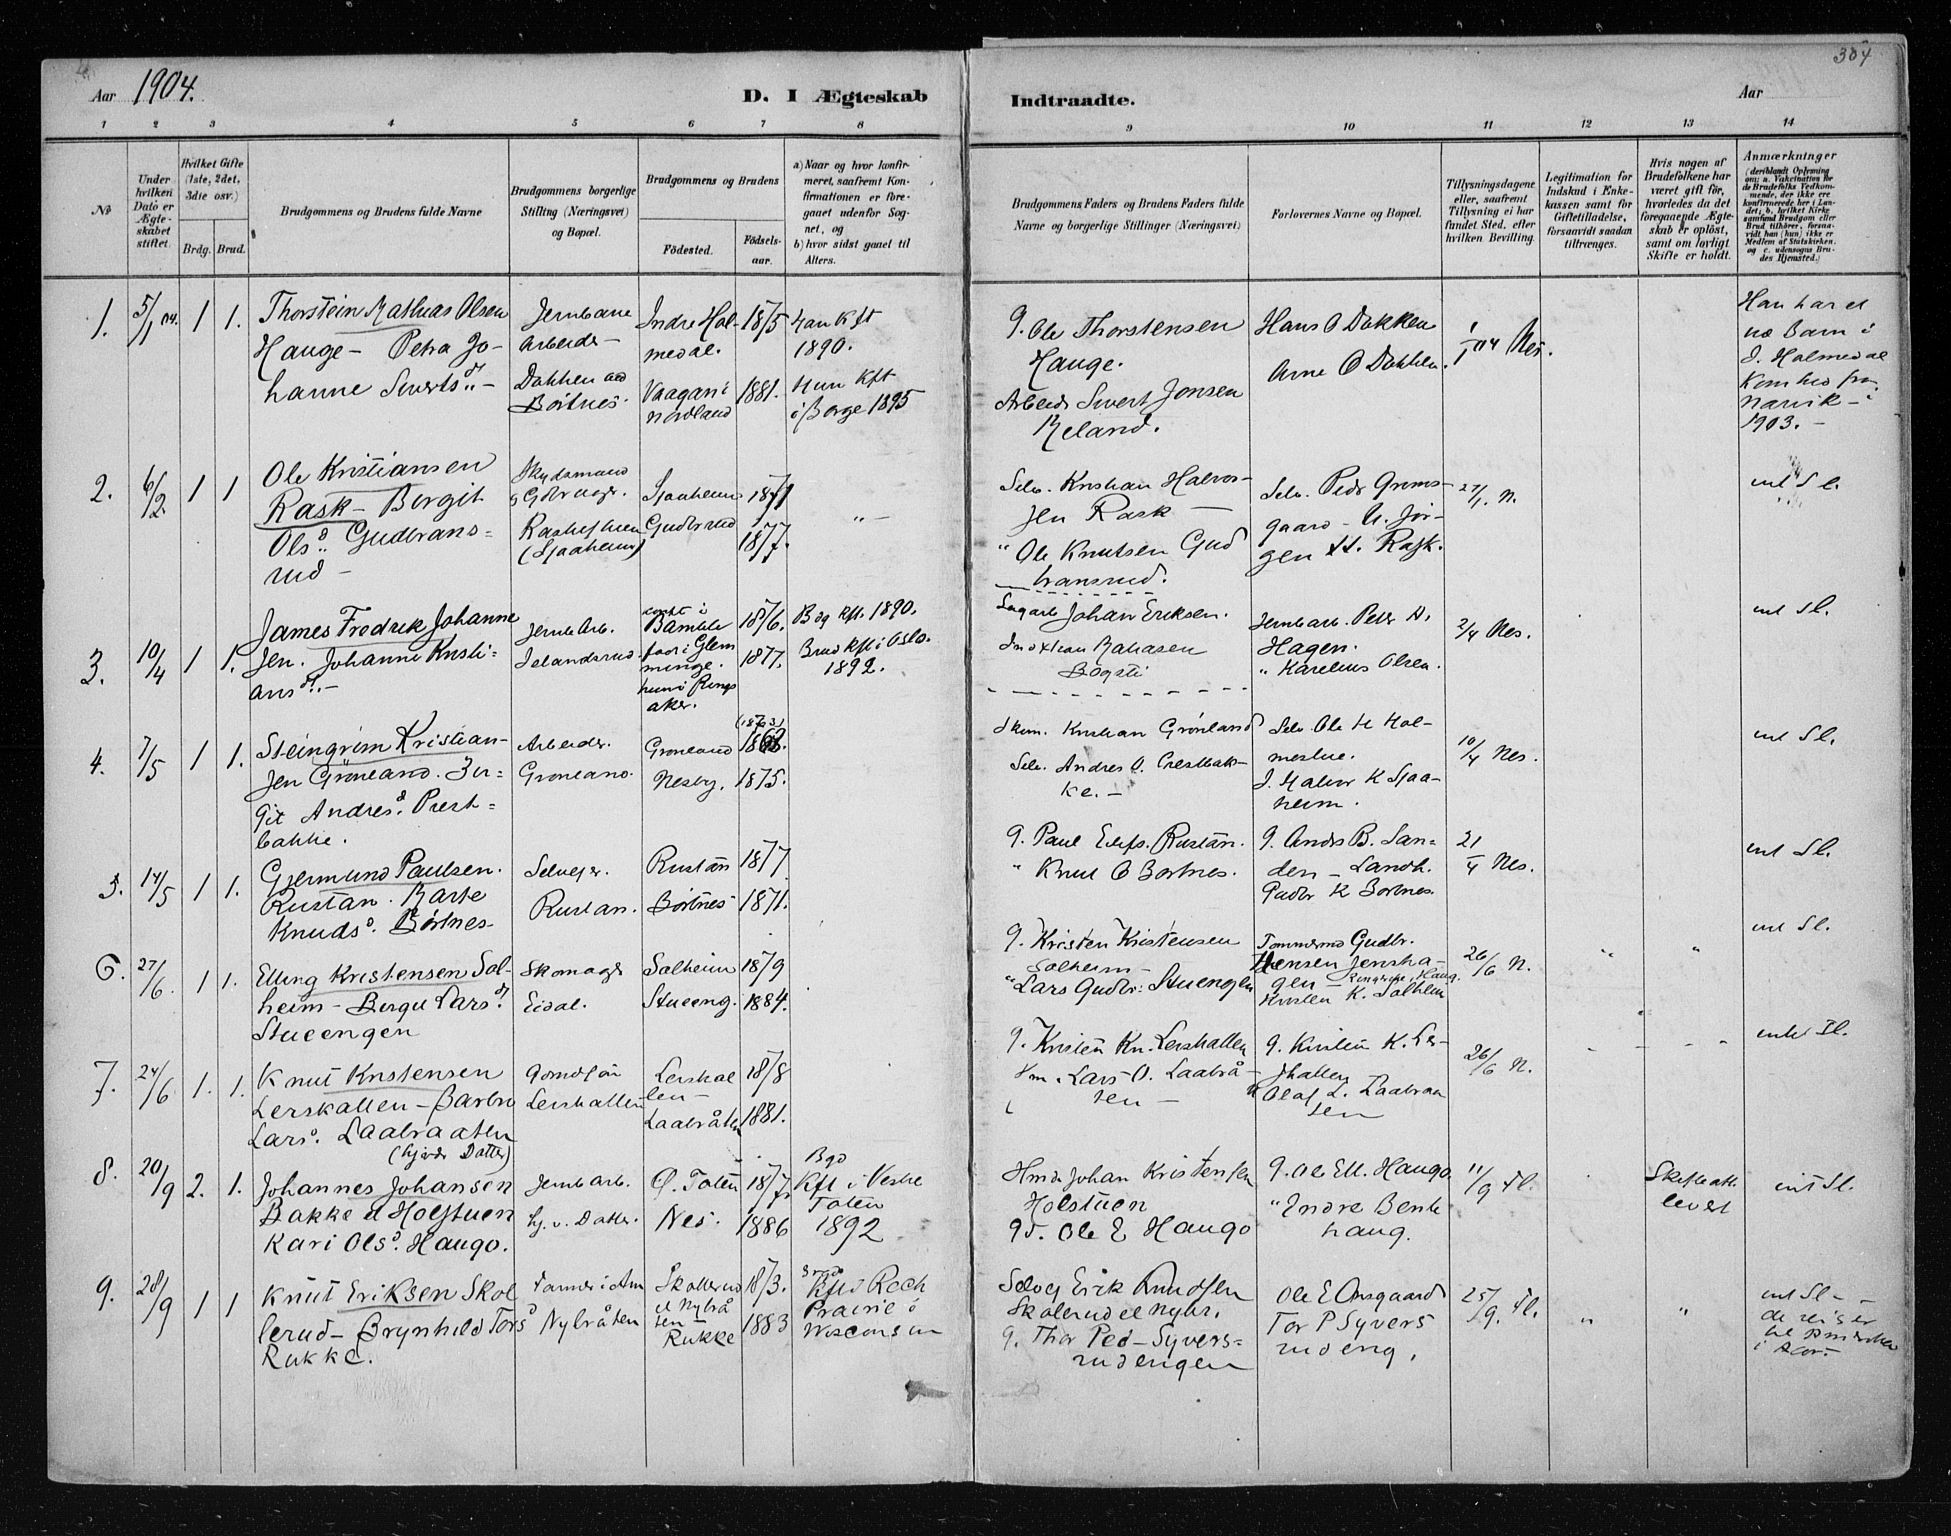 Aar 1904.
D. I Ægteskab
Indtraadte.
Aar
304
1 2 3 4 5 6 7 8
9 10 11 12 13 14
No
Under hvilken Dato er Ægteskabet stiftet.
Hvilket Gifte (1ste, 2det, 3die osv.)
Brdg. Brud.
Brudgommens og Brudens fulde Navne
Brudgommens borgerlige Stilling (Næringsvei) og Bopæl.
Brudgommens og Brudens
Fødested.
Fødsels-aar.
a) Naar og hvor konfir-
meret, saafremt Kon-
firmationen er fore-
gaaet udenfor Sog-
net, og
b) hvor sidst gaaet til
Alters.
Brudgommens Faders og Brudens Faders fulde
Navne og borgerlige Stillinger (Næringsvei)
Forlovernes Navne og Bopæl.
Tillysningsdagene
eller, saafremt
Tillysning ei har
fundet Sted, efter
hvilken Bevilling.
Legitimation for
Indskud i Enke-
kassen samt for
Giftetilladelse,
forsaavidt saadan
tiltrænges.
Hvis nogen af
Brudefolkene har
været gift før,
hvorledes da det
foregaaende Ægte-
skab er opløst,
samt om lovligt
Skifte er holdt.
Anmærkninger
(deriblandt Oplysning
om: a. Vaccination for
de Brudefolks Vedkom-
mende, der ikke ere
konfirmerede her i Lan-
det; b. hvilket Kirke
samfund Brudgom eller
Brud tilhører, forsaa-
vidt han (hun) ikke er
Medlem af Statskirken,
og c. udensogns Bru-
des Hjemsted.)
1. 5/1 04. 1 1.
Thorstein Mathias Olsen
Hauge – Petra Jo-
hanne Siverts d. –
Jernbane
Arbeider –
Dokken ved
Børtnes.
Indre Hol-
medal.
Vaagan i
Nordland
1875
1881.
Han Kft
1890.
Hun Kft
i Borge 1895
G. Ole Thorstensen
Hauge.
Arbeider Sivert Jonsen
Reland.
Hans O Dokken
Arne O Dokken.
1/1 04 Nes.
Han har et
i J. Holmedal
Kom hid fra
Narvik – i
1903. –
2. 6/2. 1 1
Ole Kristiansen
Rask – Bergit
Ols d. Gudbrans=
rud –
Skydsmand
Raskethien
(Sjaaheim)
Sjaaheim
Gudbrsrud
1871
1877.
" –
Selv. Kristian Halvor-
sen Rask –
" Ole Knutsen Gud
bransrud.
Selv. Peder Grims-
gaard – U. Jør-
gen H. Rask.
27/1. N.
int Sl.
3. 10/4 1 1.
James Fredrik Johanne
sen. Johanne Kristi-
ans d. –
Jernb Arb.
Jelandsrud.
Bamble
for i Glem
minge.
hun i Rings
aker.
1876.
1877.
Bdg Kft. 1890.
Brud Kft i Oslo.
1892.
Sagarb Johan Eriksen.
Bøgsti
Jernb arb. Peter A.
Hagen.
" Karelius Olsen.
2/4 Nes.
int Sl.
4. 7/5 1 1.
Steingrim Kristian-
sen Grønland. Bir=
git Andres d. Prest=
bakke.
Arbeider.
Grønland.
Grønland
Nesby.
(1873)
1875.
Skom. Kristian Grønland
Selv. Andres O. Prestbak-
ke. –
Selv. Ole H Hol-
mestue.
J. Halvor K Sjaa-
heim.
10/4 Nes.
int Sl.
5. 14/5 1 1.
Gjermund Paulsen.
Rustan. Marte
Knuds d. Børtnes
Selveier.
Rustan.
Rustan
Børtnes
1877
1871.
G. Paul Eilefs. Rustan.
" Knut O Bortnes.
G. Anders B. San=
den – Landh.
Gudbr K Bortnes.
21/4 Nes.
int Sl.
6. 27/6. 1 1.
Elling Kristensen Sol-
heim – Birgit Lars d.
Stueengen
Skomager
Eidal.
Solheim
Stueeng.
1879
1884.
G. Kristen Kristensen
Solheim –
" Lars Gudbr. Stuengen
Tømmermd Gudbr.
Hensen Jensha-
gen – Ringerike, Haug.
Kristen K. Solheim
26/6 N.
" "
int Sl.
7. 24/6 1. 1.
Knut Kristensen
Lerskallen – Barbro
Lars d. Laabraaten
Lerskallen
Lerskal
len –
Laabråten
1878
1881.
G. Kristen Kn. Lerskallen
Hm. Lars O. Laabrå-
ten –
G. Kristen K. Ler-
skallen
Olaf L. Laabraa
ten
26/6 N.
" – " –
intet Sl.
8. 20/9 2. 1.
(hjvde Datter)
Johannes Johansen
Bakke el Holstuen
Kari Ols d. Haugo.
Jernb arb.
hj. v. Datter.
Ø. Toten
Nes.
1877
1886
Bgd
Kft i Vestre
Toten
1892
Hmd. Johan Kristensen
Holstuen
Gd. Ole E Haugo
G. Ole Ell. Haugo
" Endre Bente
haug.
11/9 Fl.
Skifte att
levert
int Sl.
9. 28/9 1 1
Knut Eriksen Skol
lerud – Brynhild Tors d
Rukke.
Farmer i Am
Nybråten
Skollerud
el Nybrå
ten –
Rukke
1873.
1883
Brud
Kft i Rech
Prairie i
Wisconsin
Selvej Erik Knudsen
Skolerud el Nybr.
G. Thor Ped – Syvers=
rudengen
Ole E Onsgaard
Tor P Syvers
rudeng.
25/9. Fl.
" "
int Sl –
de reiser
til Amerika
i Aar. –